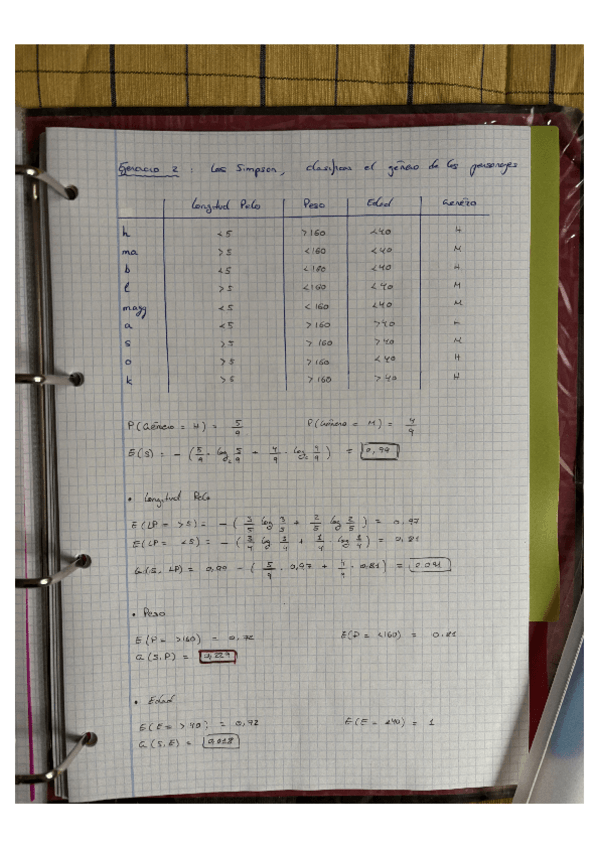 Ejercicio 2 : Los Simpson, clasificar el género de los personajes
Longitud Pelo Peso Edad Género
h <5 >160 <40 H
ma >5 <160 <40 M
b <5 <160 <40 H
l >5 <160 <40 M
magg <5 <160 <40 M
a <5 >160 >40 H
s >5 >160 >40 M
o >5 >160 <40 H
k >5 >160 >40 H
P(Género = H) = 5/9 P(Género = M) = 4/9
E(S) = -(5/9 · log₂ 5/9 + 4/9 · log₂ 4/9) = 0,99
• Longitud Pelo
E(LP = >5) = -(3/5 log 3/5 + 2/5 log 2/5) = 0.97
E(LP = <5) = -(3/4 log 3/4 + 1/4 · log 1/4) = 0,81
G(S, LP) = 0,99 - (5/9 · 0,97 + 4/9 · 0.81) = 0.091
• Peso
E(P = >160) = 0,72 E(P = <160) = 0.81
G(S,P) =
• Edad
E(E = >40) = 0,92 E(E = <40) = 1
G(S,E) =